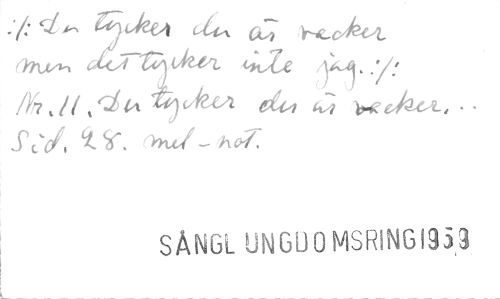 :/: Du tycker du är vacker
men det tycker inte jag. :/:
Nr. 11. Du tycker du är vacker...
Sid. 28. mel-not.
SÅNGL UNGDOMSRING 1959